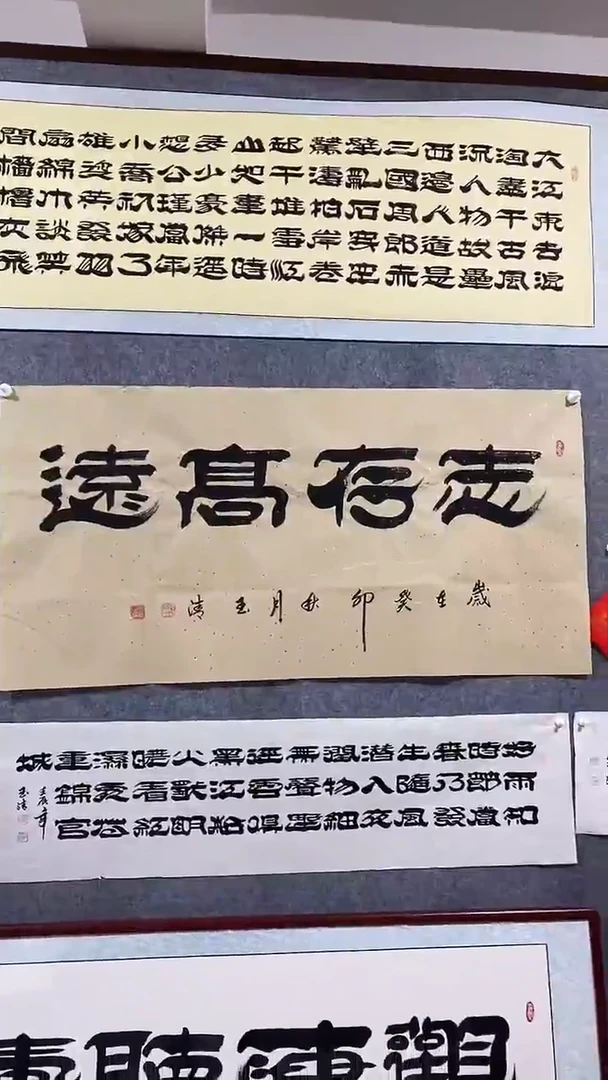 大江東去浪
淘盡千古風
流人物故壘
西邊人道是
三國周郎赤
壁亂石穿空
驚濤拍岸卷
起千堆雪江
山如畫一時
多少豪傑遙
想公瑾當年
小喬初嫁了
雄姿英發羽
扇綸巾談笑
間檣櫓灰飛
志存髙遠
歲在癸卯秋月玉清
好雨知
時節當
春乃發
生隨風
潛入夜
潤物細
無聲野
徑雲俱
黑江船
火獨明
曉看紅
濕處花
重錦官
城
玉清
觀海聽濤